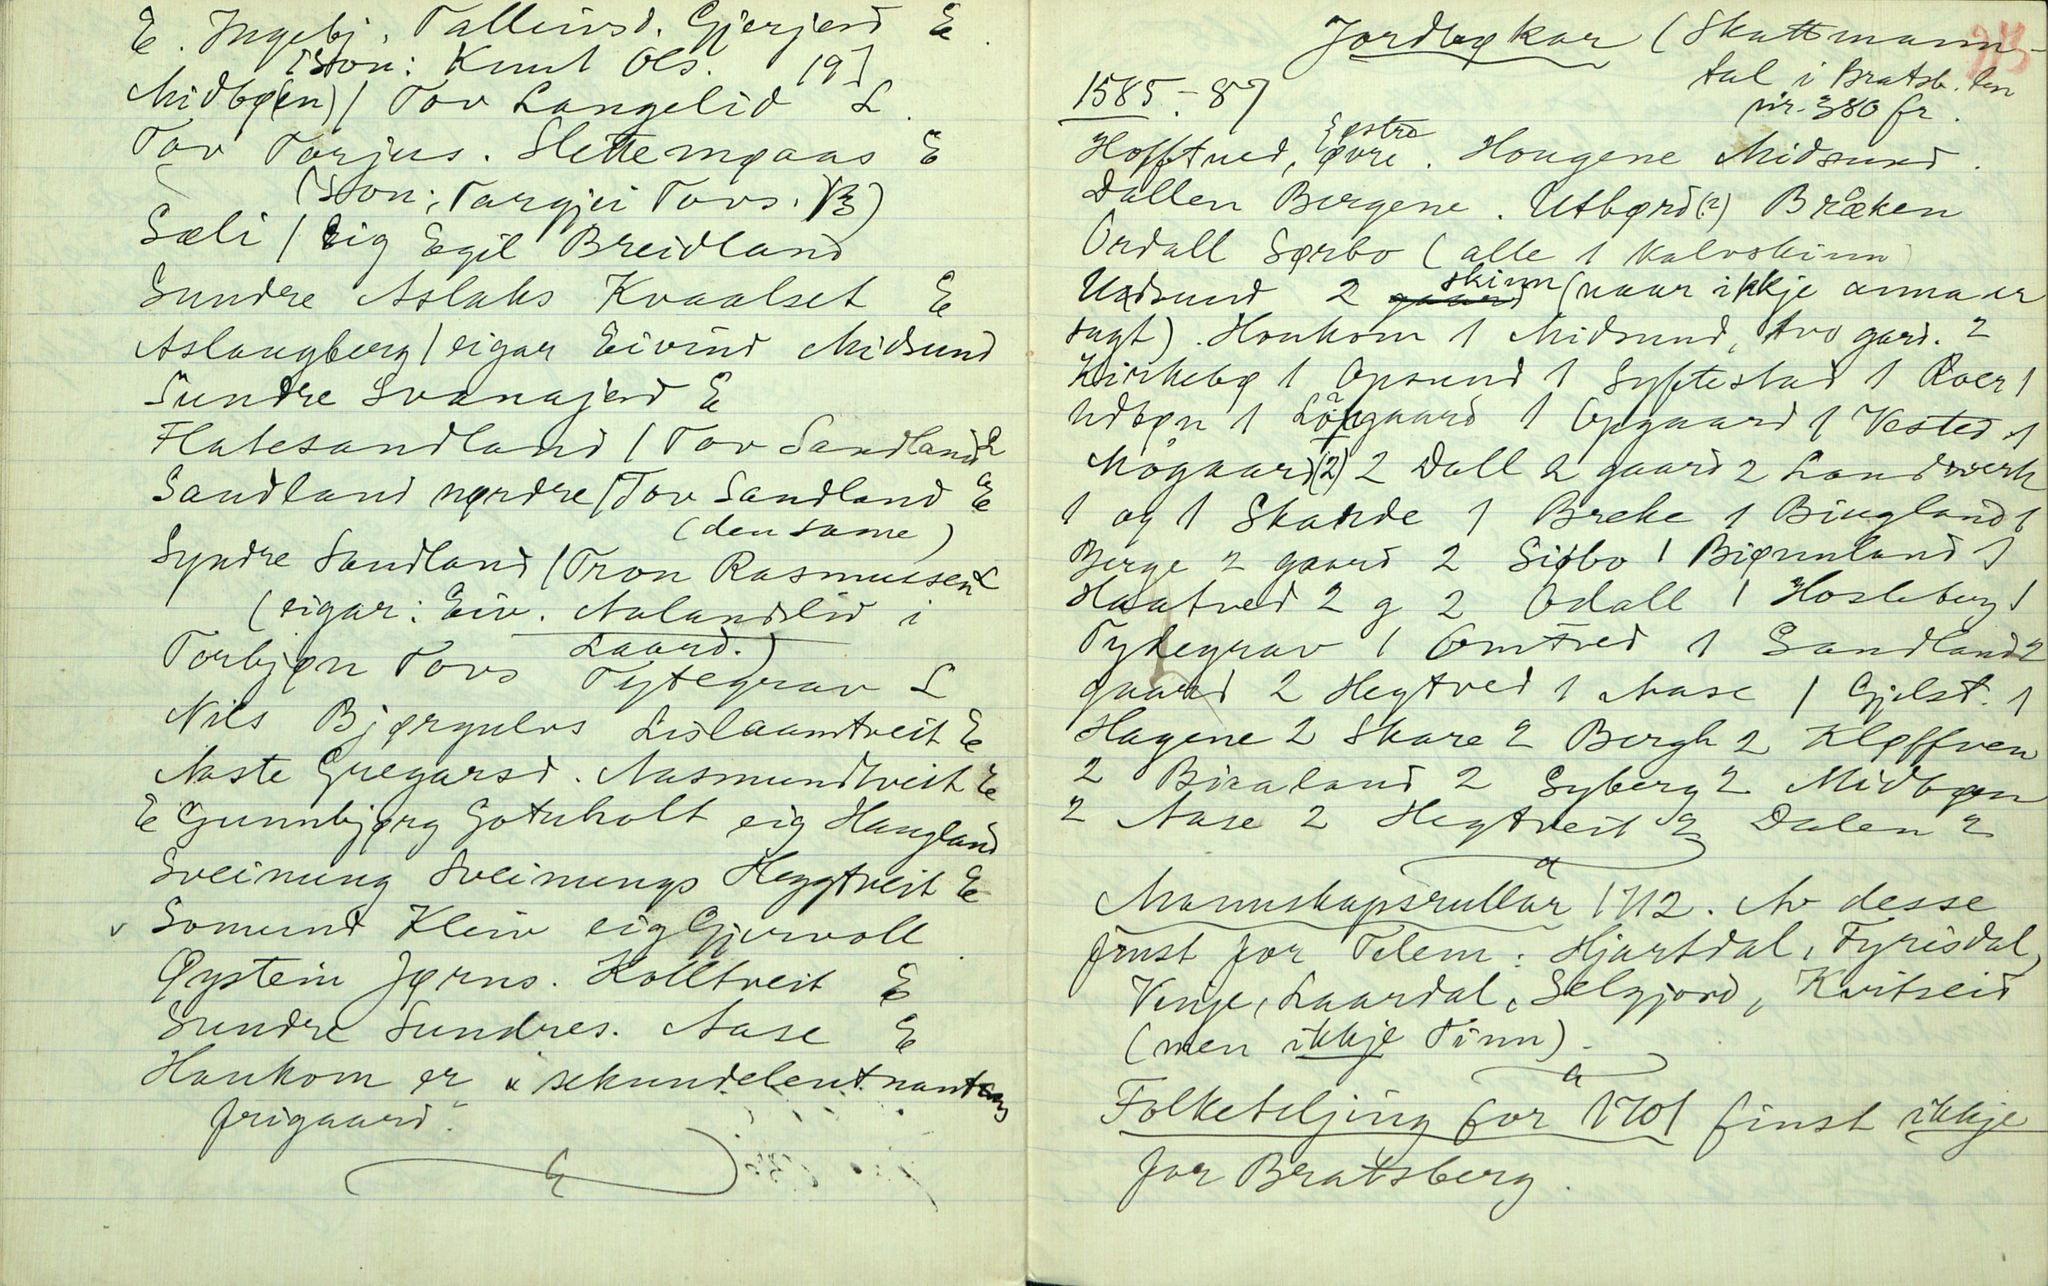 E. Ingebj. Talleivsd. Gjerjord E
(Son: Knut Ols. 19]
Midbø(en) / Tov Langelid L
Tov Torjus. Slettemoaas E
(Son: Targjei Tovs. 13)
Sæli / eig Egil Breidland
Sundre Aslaks Kvaalset E
Aslaugberg / eigar Eivind Midsund
Sundre Svanajord E
Flatesandland / Tov Sandland L
Sandland nørdre / Tov Sandland E
(den same)
Syndre Sandland / Tron Rasmussen L
(eigar: Eiv. Aalandslid i
Laard.)
Torbjøn Tovs Tytegrav L
Nils Bjørgulvs Lislaamtveit E
Aaste Gregarsd. Aasmundtveit E
E Gunnbjørg Gotuholt eig Haugland
Sveinung Sveinungs Heggtveit E
v Somund Kleiv eig Gjervoll
Øystein Jørns. Kolltveit E
Sundre Sundres. Aase E
Haukom er "sekundeleutnantens
frigaard."
213
Jordbøkar (Skattmann-
tal i Bratsb. len
nr. 380 fr.
1585-87
Hofftved, østre øvre. Hougene Midsund.
Dallen Bergene. Utbørd(?) Bræken
Ordall Sørbo (alle 1 kalvskinn)
Udsund 2 skinn (naar ikkje anna er
sagt). Houkom 1 Midsund, tvo gard. 2
Kirkebø 1 Opsund 1 Syftestad 1 Roer 1
Udbøn 1 Löfgaard 1 Opgaard 1 Vested 1
Mogaard(2) 2 Dall 2 gaard 2 Landverk
1 og 1 Skarde 1 Breke 1 Bingland 1
Berge 2 gaard 2 Siøbo 1 Biønnland 1
Haatved 2 g 2 Odall 1 Hosleberg 1
Tytegrav 1 Omtved 1 Sandland 2
gaard 2 Hegtved 1 Aase 1 Gjelst. 1
Hagene 2 Skare 2 Bergh 2 Kløffven
2 Biraland 2 Syberg 2 Midbøen
2 Aase 2 Hegtveit 2 Dalen 2
Mannskapsrullar 1712. Av desse
finst for Telem: Hjartdal, Fyrisdal,
Vinje, Laardal, Selgjord, Kvitseid
(men ikkje Tinn).
Folketeljing for 1701 finst ikkje
for Bratsberg.